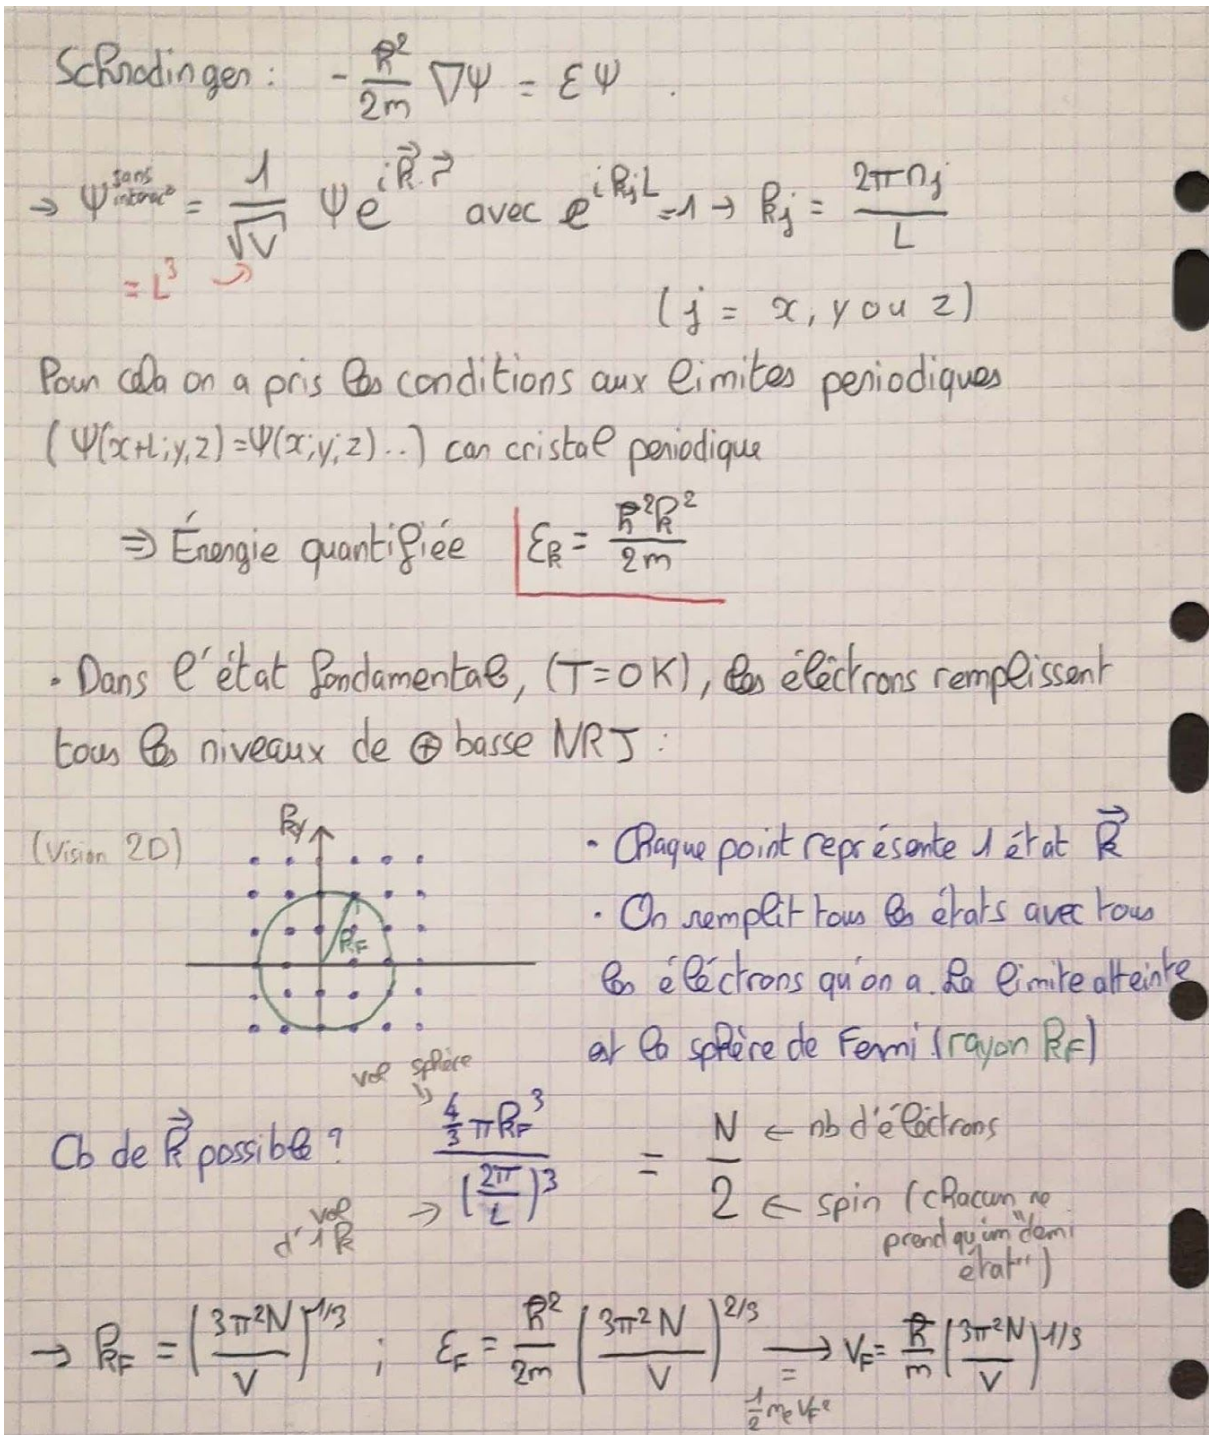 Schrodinger : - ħ²/2m ∇Ψ = ƐΨ .
→ Ψ^{sans interac°} = 1/√V Ψe^{i\vec{k}.\vec{r}} avec e^{ik_jL} = 1 → k_j = 2πn_j/L
= L³
(j = x, y ou z)
Pour cela on a pris les conditions aux limites periodiques
(Ψ(x+L;y,z) = Ψ(x;y;z)..) car cristal periodique
⇒ Énergie quantifiée Ɛ_k = ħ²k²/2m
• Dans l'état fondamental, (T=0K), les éléctrons remplissent
tous les niveaux de ⊕ basse NRJ :
(Vision 2D)
k_y
k_F
• Chaque point représente 1 état \vec{k}
• On remplit tous les états avec tous
les éléctrons qu'on a. La limite atteinte
est la sphère de Fermi (rayon k_F)
vol sphère
Cb de \vec{k} possible ? 4/3 πk_F³ / (2π/L)³ = N/2
vol d'1 k →
← nb d'éléctrons
← spin (chacun ne
prend qu'un "demi
état")
→ k_F = (3π²N/V)^{1/3} ; Ɛ_F = ħ²/2m (3π²N/V)^{2/3} → V_F = ħ/m (3π²N/V)^{1/3}
= ½m_eV_F²